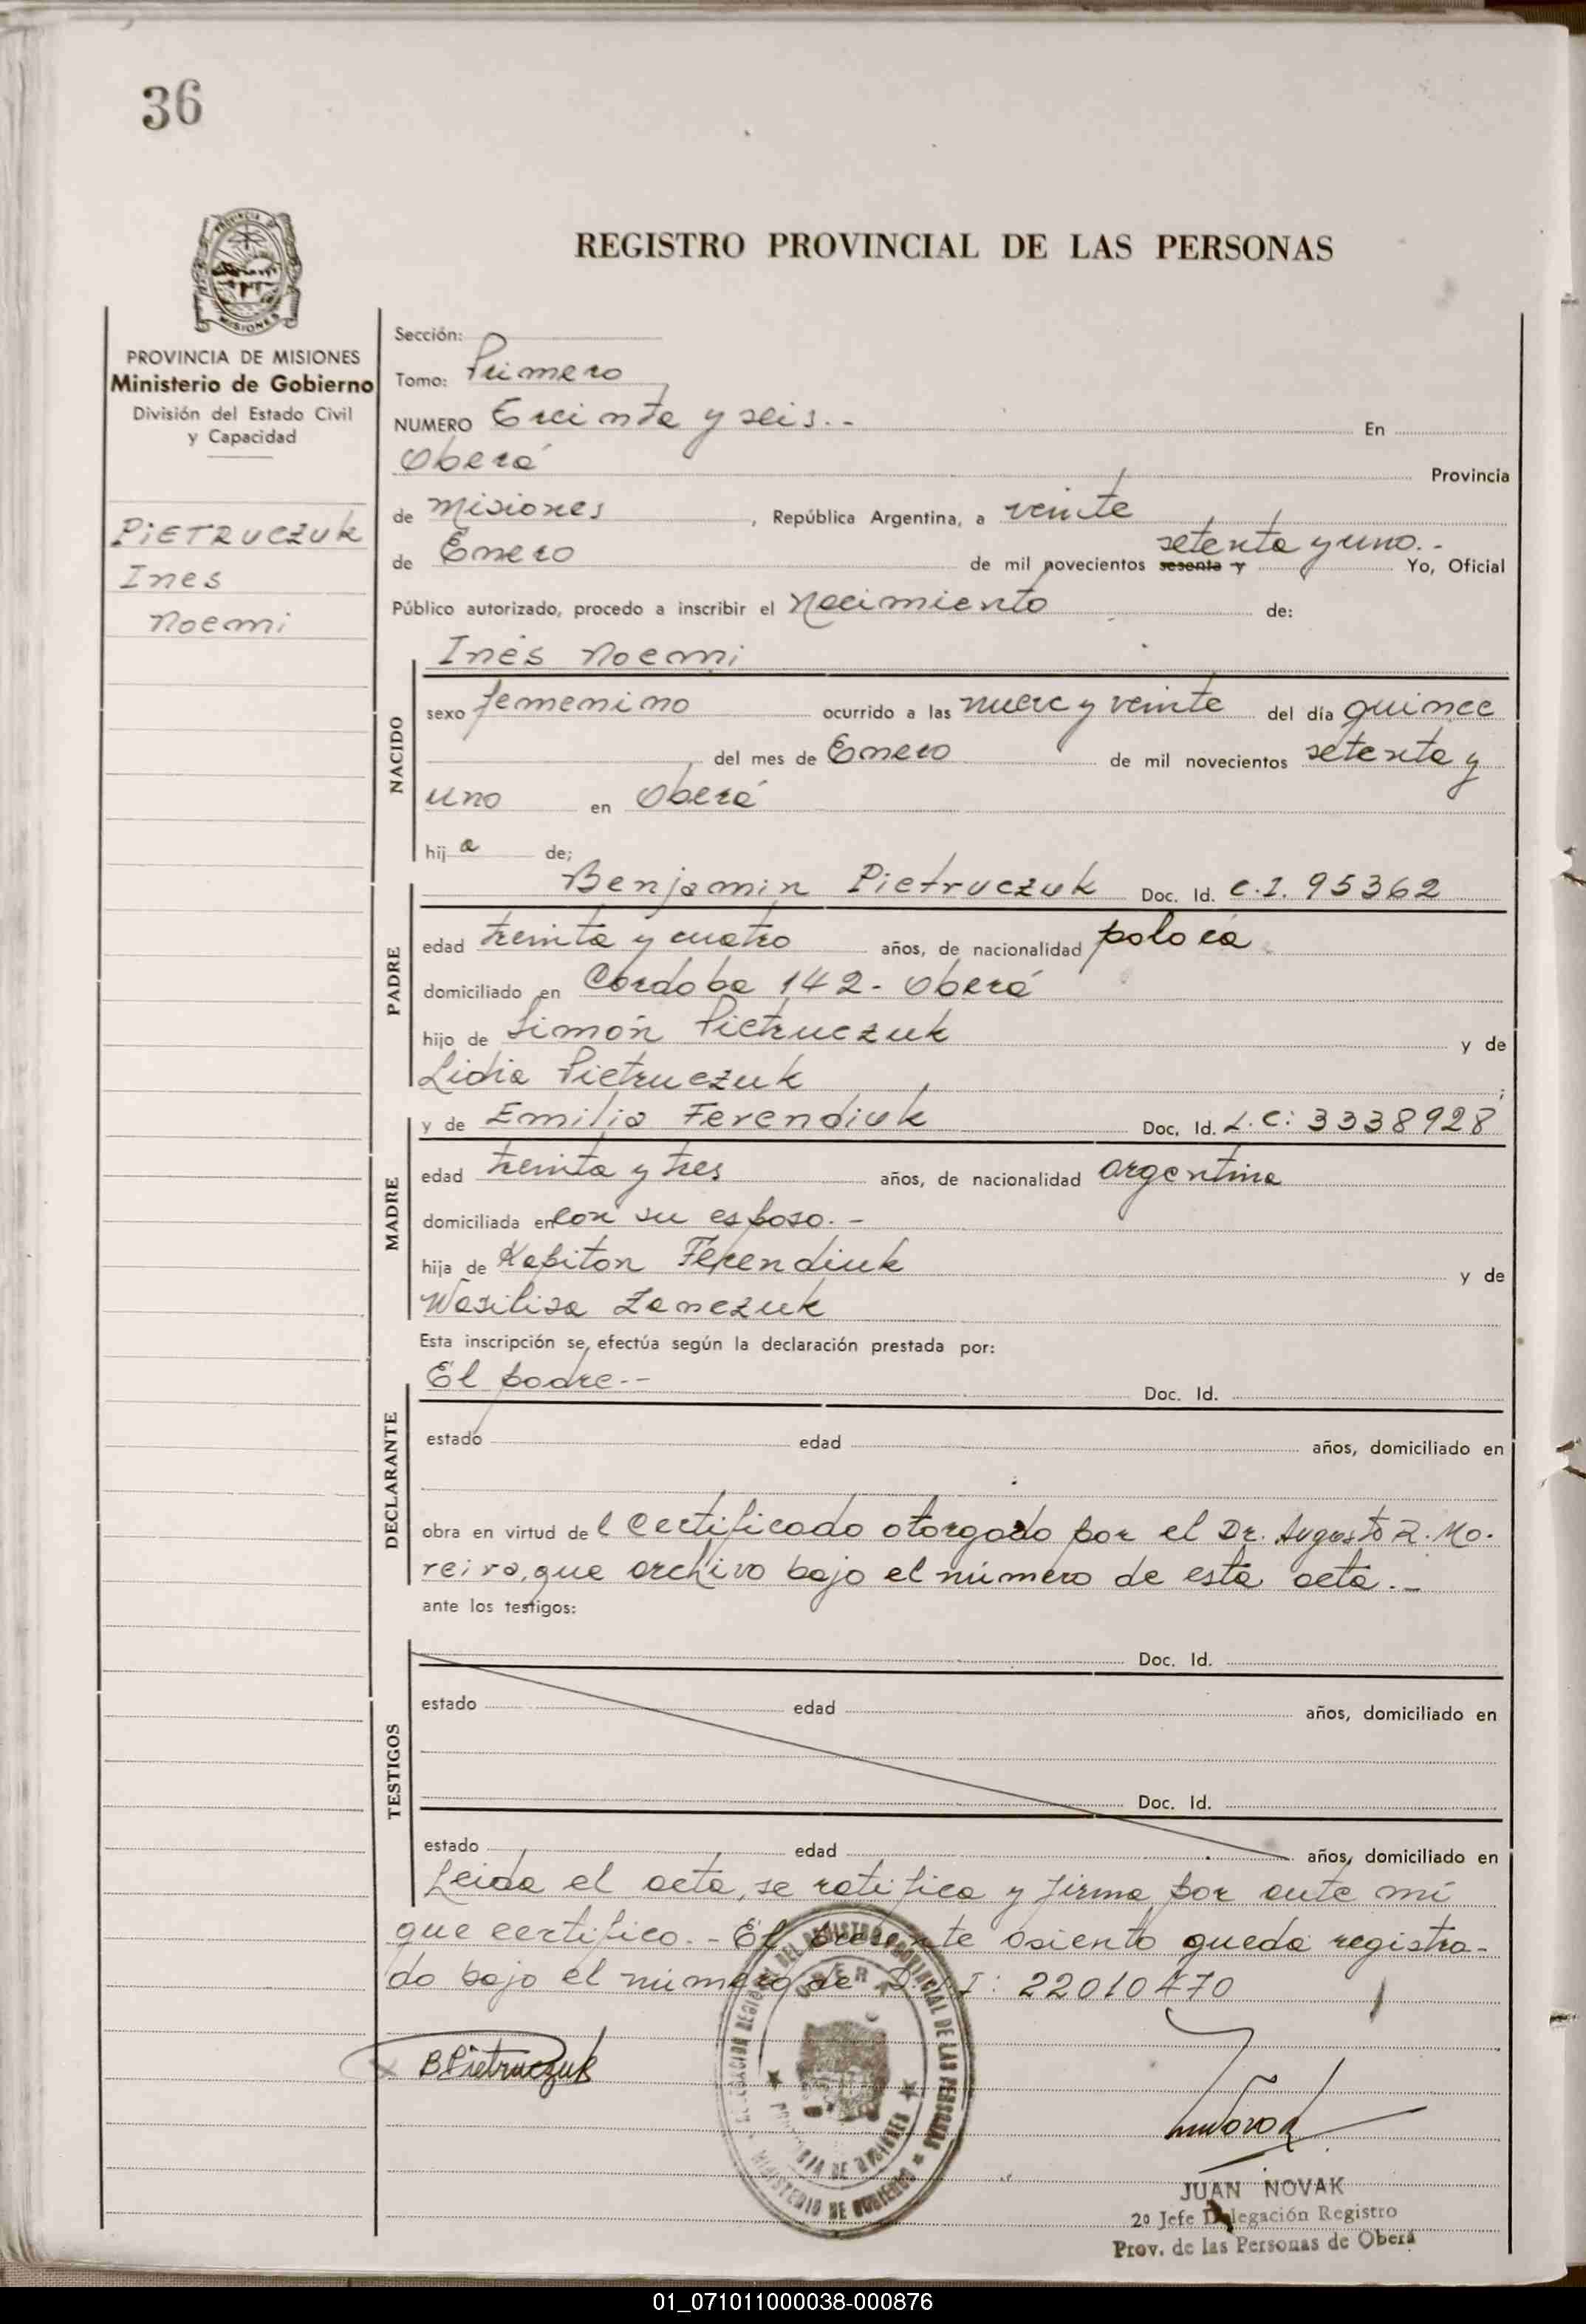 36
PROVINCIA DE MISIONES
REGISTRO PROVINCIAL DE LAS PERSONAS
PROVINCIA DE MISIONES
Ministerio de Gobierno
División del Estado Civil
y Capacidad
PIETRUCZUK
Ines
Noemi
Sección:
Tomo: Primero
NUMERO Treinta y seis.- En
Oberá Provincia
de Misiones , República Argentina, a veinte
de Enero de mil novecientos sesenta y setenta y uno.- Yo, Oficial
Público autorizado, procedo a inscribir el Nacimiento de:
Inés Noemi
NACIDO
sexo femenino ocurrido a las nueve y veinte del día quince
del mes de Enero de mil novecientos setenta y
uno en Oberá
hij a de;
PADRE
Benjamin Pietruczuk Doc. Id. C.I. 95362
edad treinta y cuatro años, de nacionalidad polaca
domiciliado en Cordoba 142- Oberá
hijo de Simón Pietruczuk y de
Lidia Pietruczuk ;
MADRE
y de Emilia Ferendiuk Doc. Id. L.C: 3338928
edad treinta y tres años, de nacionalidad argentina
domiciliada en con su esposo.-
hija de Kapiton Ferendiuk y de
Wasilisa Zanczuk
Esta inscripción se efectúa según la declaración prestada por:
DECLARANTE
El padre.-- Doc. Id.
estado edad años, domiciliado en
obra en virtud de l Certificado otorgado por el Dr. Augusto R. Mo-
reira, que archivo bajo el número de esta acta.-
ante los testigos:
TESTIGOS
Doc. Id.
estado edad años, domiciliado en
Doc. Id.
estado edad años, domiciliado en
Leida el acta, se ratifica y firma por ante mí
que certifico.- El presente asiento queda registra-
do bajo el número de D.N.I: 22010470
BPietruczuk
DELEGACION REGIONAL DEL REGISTRO PROVINCIAL DE LAS PERSONAS
OBERA
PROVINCIA DE MISIONES
MINISTERIO DE GOBIERNO
JUAN NOVAK
2º Jefe Delegación Registro
Prov. de las Personas de Oberá
01_071011000038-000876